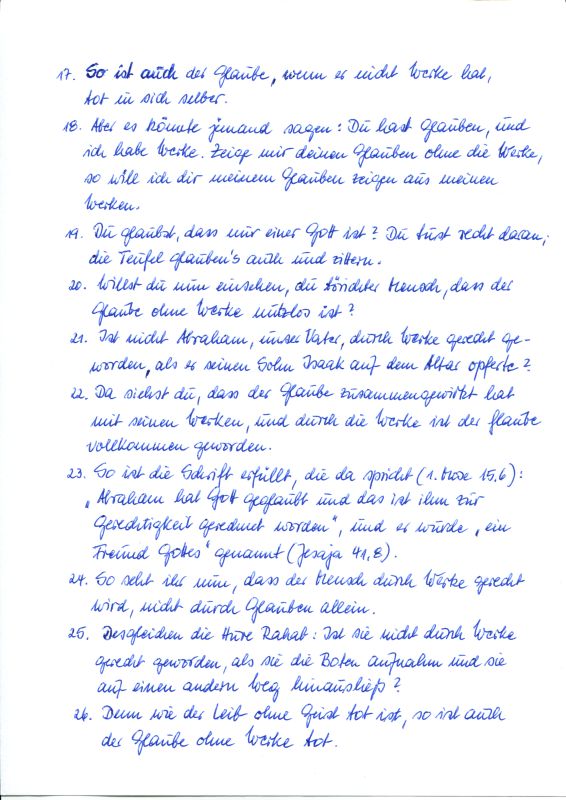 17. So ist auch der Glaube, wenn er nicht Werke hat,
tot in sich selber.
18. Aber es könnte jemand sagen: Du hast Glauben, und
ich habe Werke. Zeige mir deinen Glauben ohne die Werke,
so will ich dir meinem Glauben zeigen aus meinen
Werken.
19. Du glaubst, dass nur einer Gott ist? Du tust recht daran;
die Teufel glauben's auch und zittern.
20. Willst du nun einsehen, du törichter Mensch, dass der
Glaube ohne Werke nutzlos ist?
21. Ist nicht Abraham, unser Vater, durch Werke gerecht ge-
worden, als er seinen Sohn Isaak auf dem Altar opferte?
22. Da siehst du, dass der Glaube zusammengewirkt hat
mit seinen Werken, und durch die Werke ist der Glaube
vollkommen geworden.
23. So ist die Schrift erfüllt, die da spricht (1. Mose 15,6):
„Abraham hat Gott geglaubt und das ist ihm zur
Gerechtigkeit gerechnet worden", und er wurde „ein
Freund Gottes" genannt (Jesaja 41,8).
24. So seht ihr nun, dass der Mensch durch Werke gerecht
wird, nicht durch Glauben allein.
25. Desgleichen die Hure Rahab: Ist sie nicht durch Werke
gerecht geworden, als sie die Boten aufnahm und sie
auf einen andern Weg hinausließ?
26. Denn wie der Leib ohne Geist tot ist, so ist auch
der Glaube ohne Werke tot.